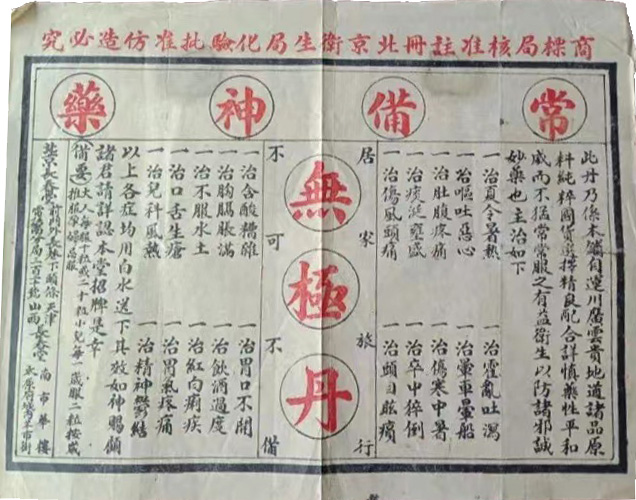 商標局核准註冊北京衛生局化驗批准仿造必究
常備神藥
此丹乃係本鋪自運川廣雲貴地道諸品原
料純粹國貨選擇精良配合詳慎藥性平和
咸而不猛常常服之有益衛生以防諸邪誠
妙藥也主治如下
一治夏令暑熱 一治霍亂吐瀉
一治嘔吐惡心 一治暈車暈船
一治肚腹疼痛 一治傷寒中暑
一治痰涎壅盛 一治卒中猝倒
一治傷風頭痛 一治頭目眩瞶
居家旅行
無極丹
不可不備
一治含酸糟雜 一治胃口不開
一治胸膈脹滿 一治飲酒過度
一治不服水土 一治紅白痢疾
一治口舌生瘡 一治胃氣疼痛
一治兒科風熱 一治精神鬱結
以上各症均用白水送下其效如神賜顧
諸君請詳認本堂招牌是幸
備要 大人每服二粒或二十粒小兒每一歲服二粒按歲
推服
北京長春堂 前門外長巷下頭條 天津
電話分局二百十號 山西 長春堂 南市華樓
太原府城內羊市街